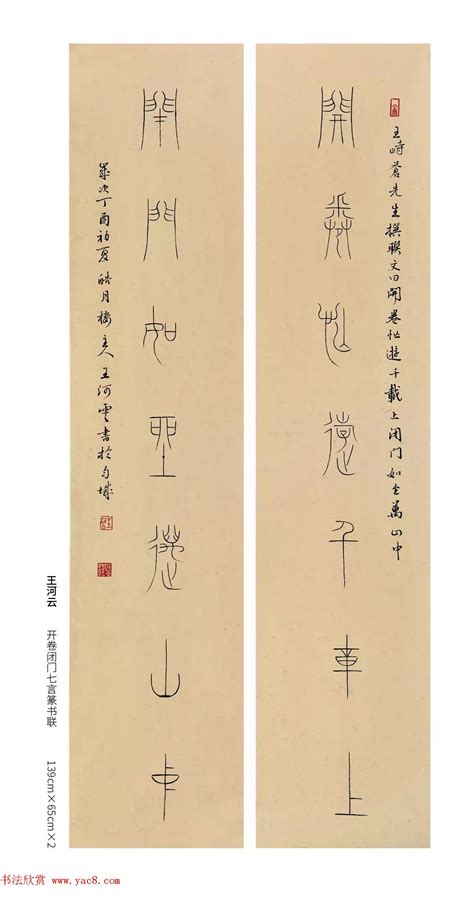 王峙蒼先生撰聯文曰開卷怳遊千載上闭门如坐萬山中
開卷怳遊千載上
閉門如坐萬山中
歲次丁酉初夏皓月樓主人王河雲書於
王河云 开卷闭门七言篆书联 139cm×65cm×2
书法欣赏 www.yac8.com